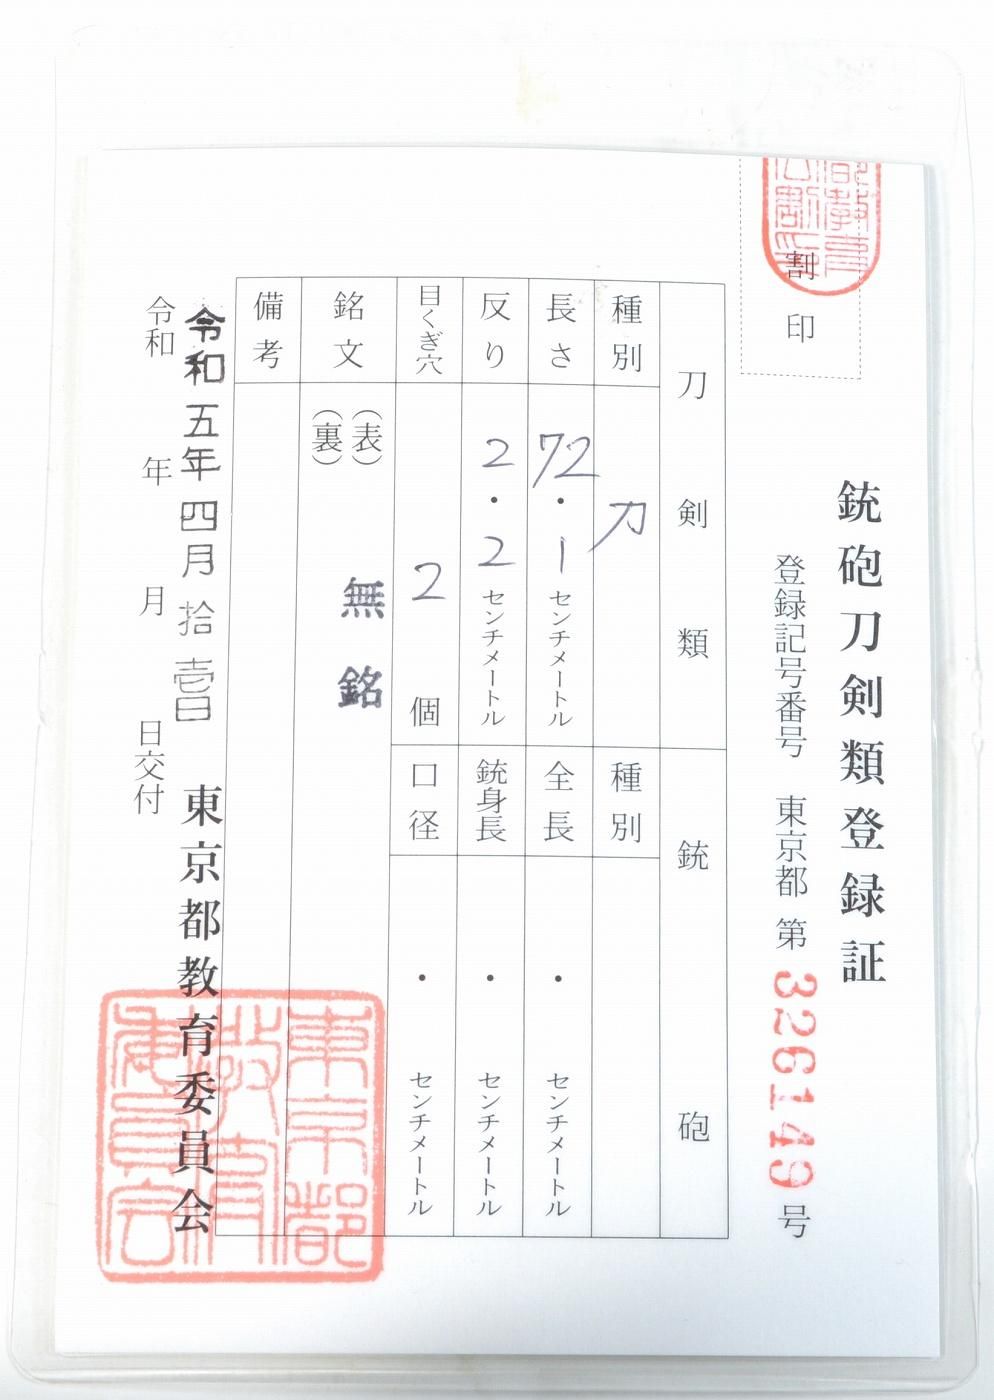 割印
銃砲刀剣類登録証
登録記号番号 東京都 第 326149 号
刀剣類
銃砲
種別 刀
種別
長さ 72・1 センチメートル
全長 ・ センチメートル
反り 2・2 センチメートル
銃身長 ・ センチメートル
目くぎ穴 2 個
口径 ・ センチメートル
銘文
(表)
(裏)
無銘
備考
令和五年四月拾壱日 東京都教育委員会
令和 年 月 日交付
東京都
教育
委員会